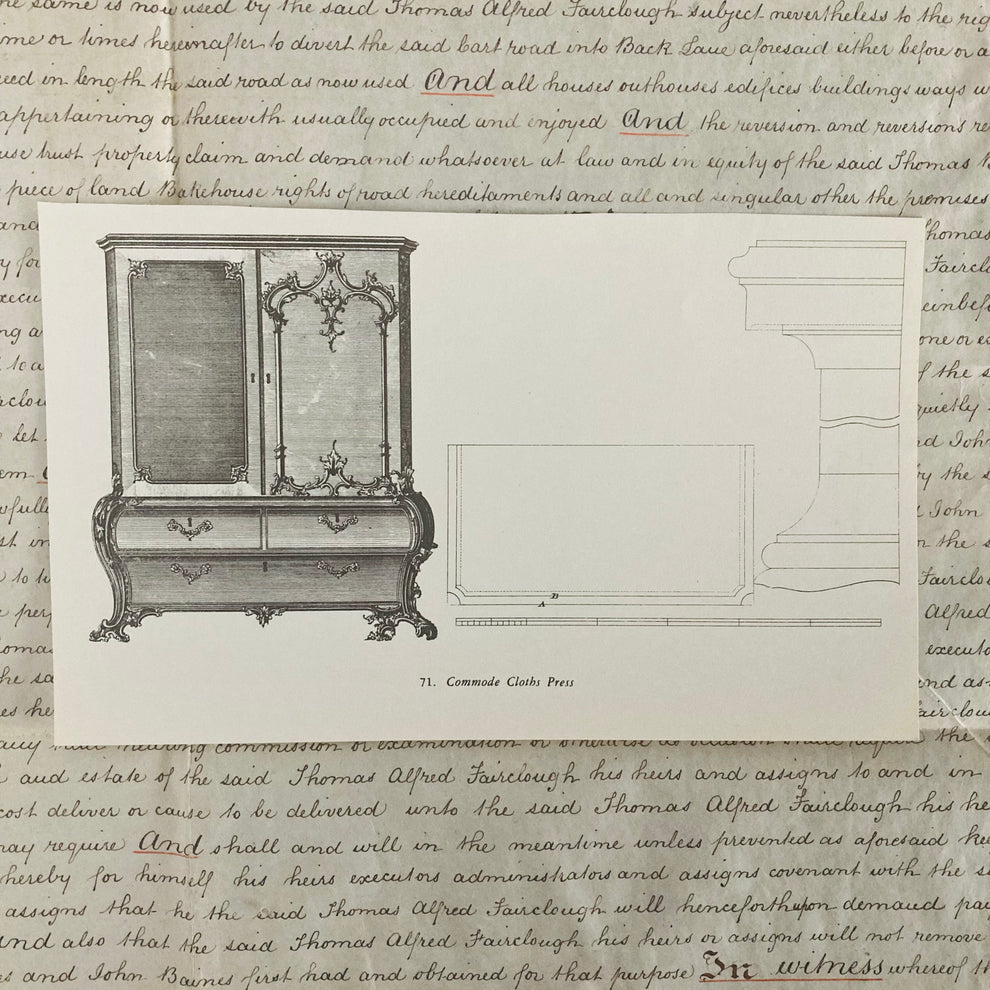 the same is now used by the said Thomas Alfred Fairclough subject nevertheless to the
time or times hereinafter to divert the said Cart road into Back Lane aforesaid either before or
in length the said road as now used And all houses outhouses edifices buildings ways
appertaining or therewith usually occupied and enjoyed And the reversion and reversions
use trust property claim and demand whatsoever at law and in equity of the said Thomas
piece of land Bakehouse rights of road hereditaments and all and singular other the premises
and Thomas
Fairclo
one or
to a of the s
quietly
let and John
em by the s
John
st in the s
to Fairclo
Alfred
homas executo
the sa and as
es he fairclou
commission or examination or the s
and estate of the said Thomas Alfred Fairclough his heirs and assigns to and in
cost deliver or cause to be delivered unto the said Thomas Alfred Fairclough his he
may require And shall and will in the meantime unless prevented as aforesaid kee
hereby for himself his heirs executors administrators and assigns covenant with the s
assigns that he the said Thomas Alfred Fairclough will henceforth upon demand pay
and also that the said Thomas Alfred Fairclough his heirs or assigns will not remove
es and John Baines first had and obtained for that purpose In witness whereof th
B
A
71. Commode Cloths Press